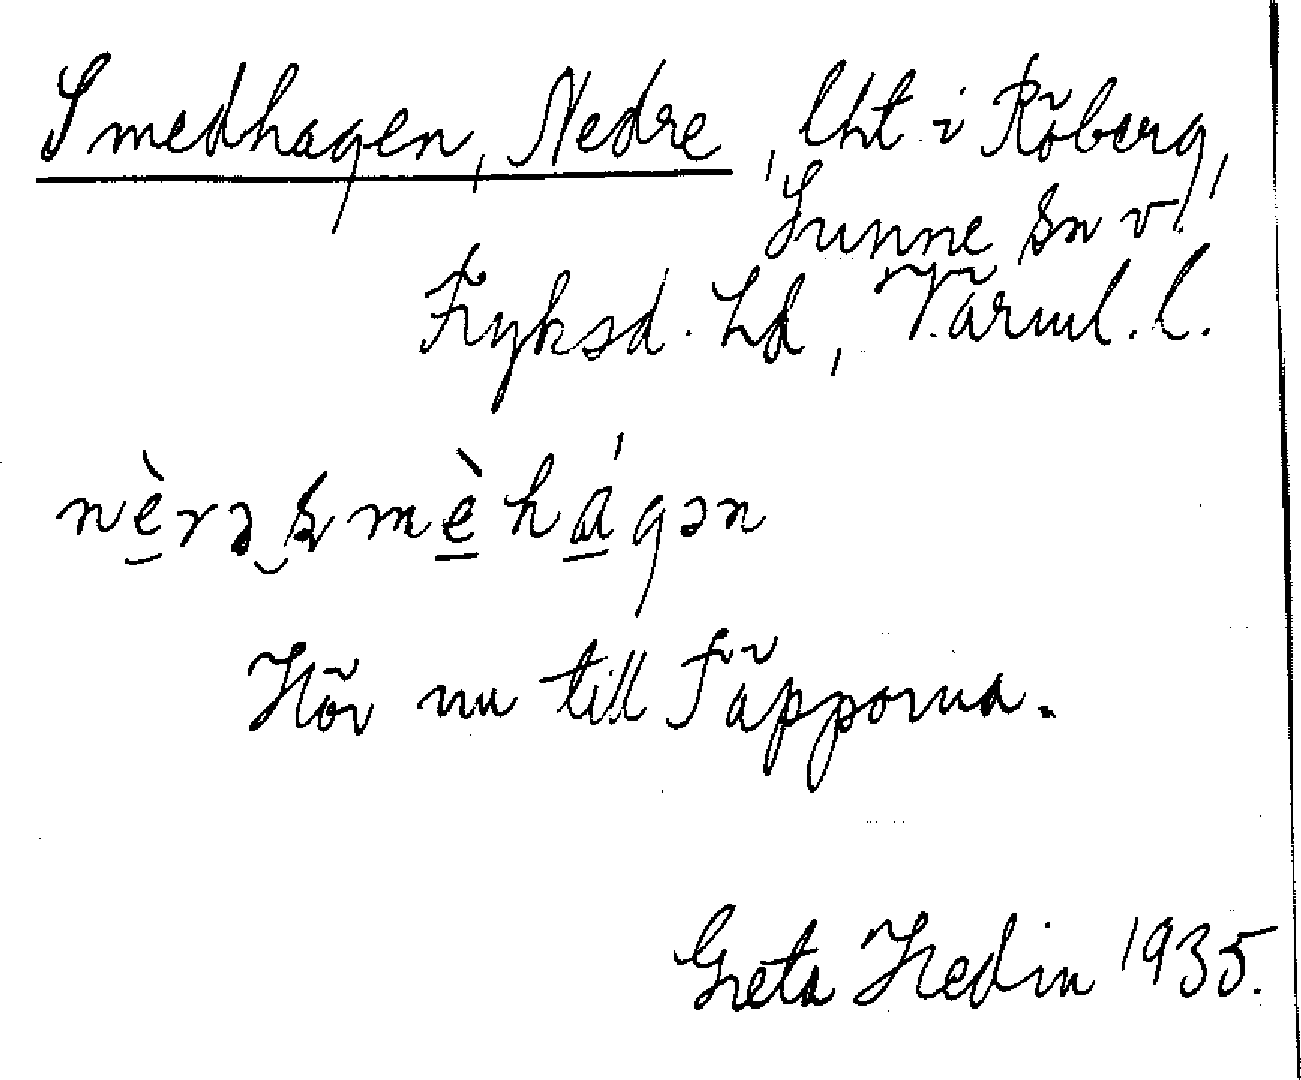 Smedhagen, Nedre, lht i Röberg,
Sunne sn v.
Fryksd. hd, Värml. l.
nè̱rə‿smè̱há̱gən
Hör nu till Täpporna.
Greta Hedin 1935.